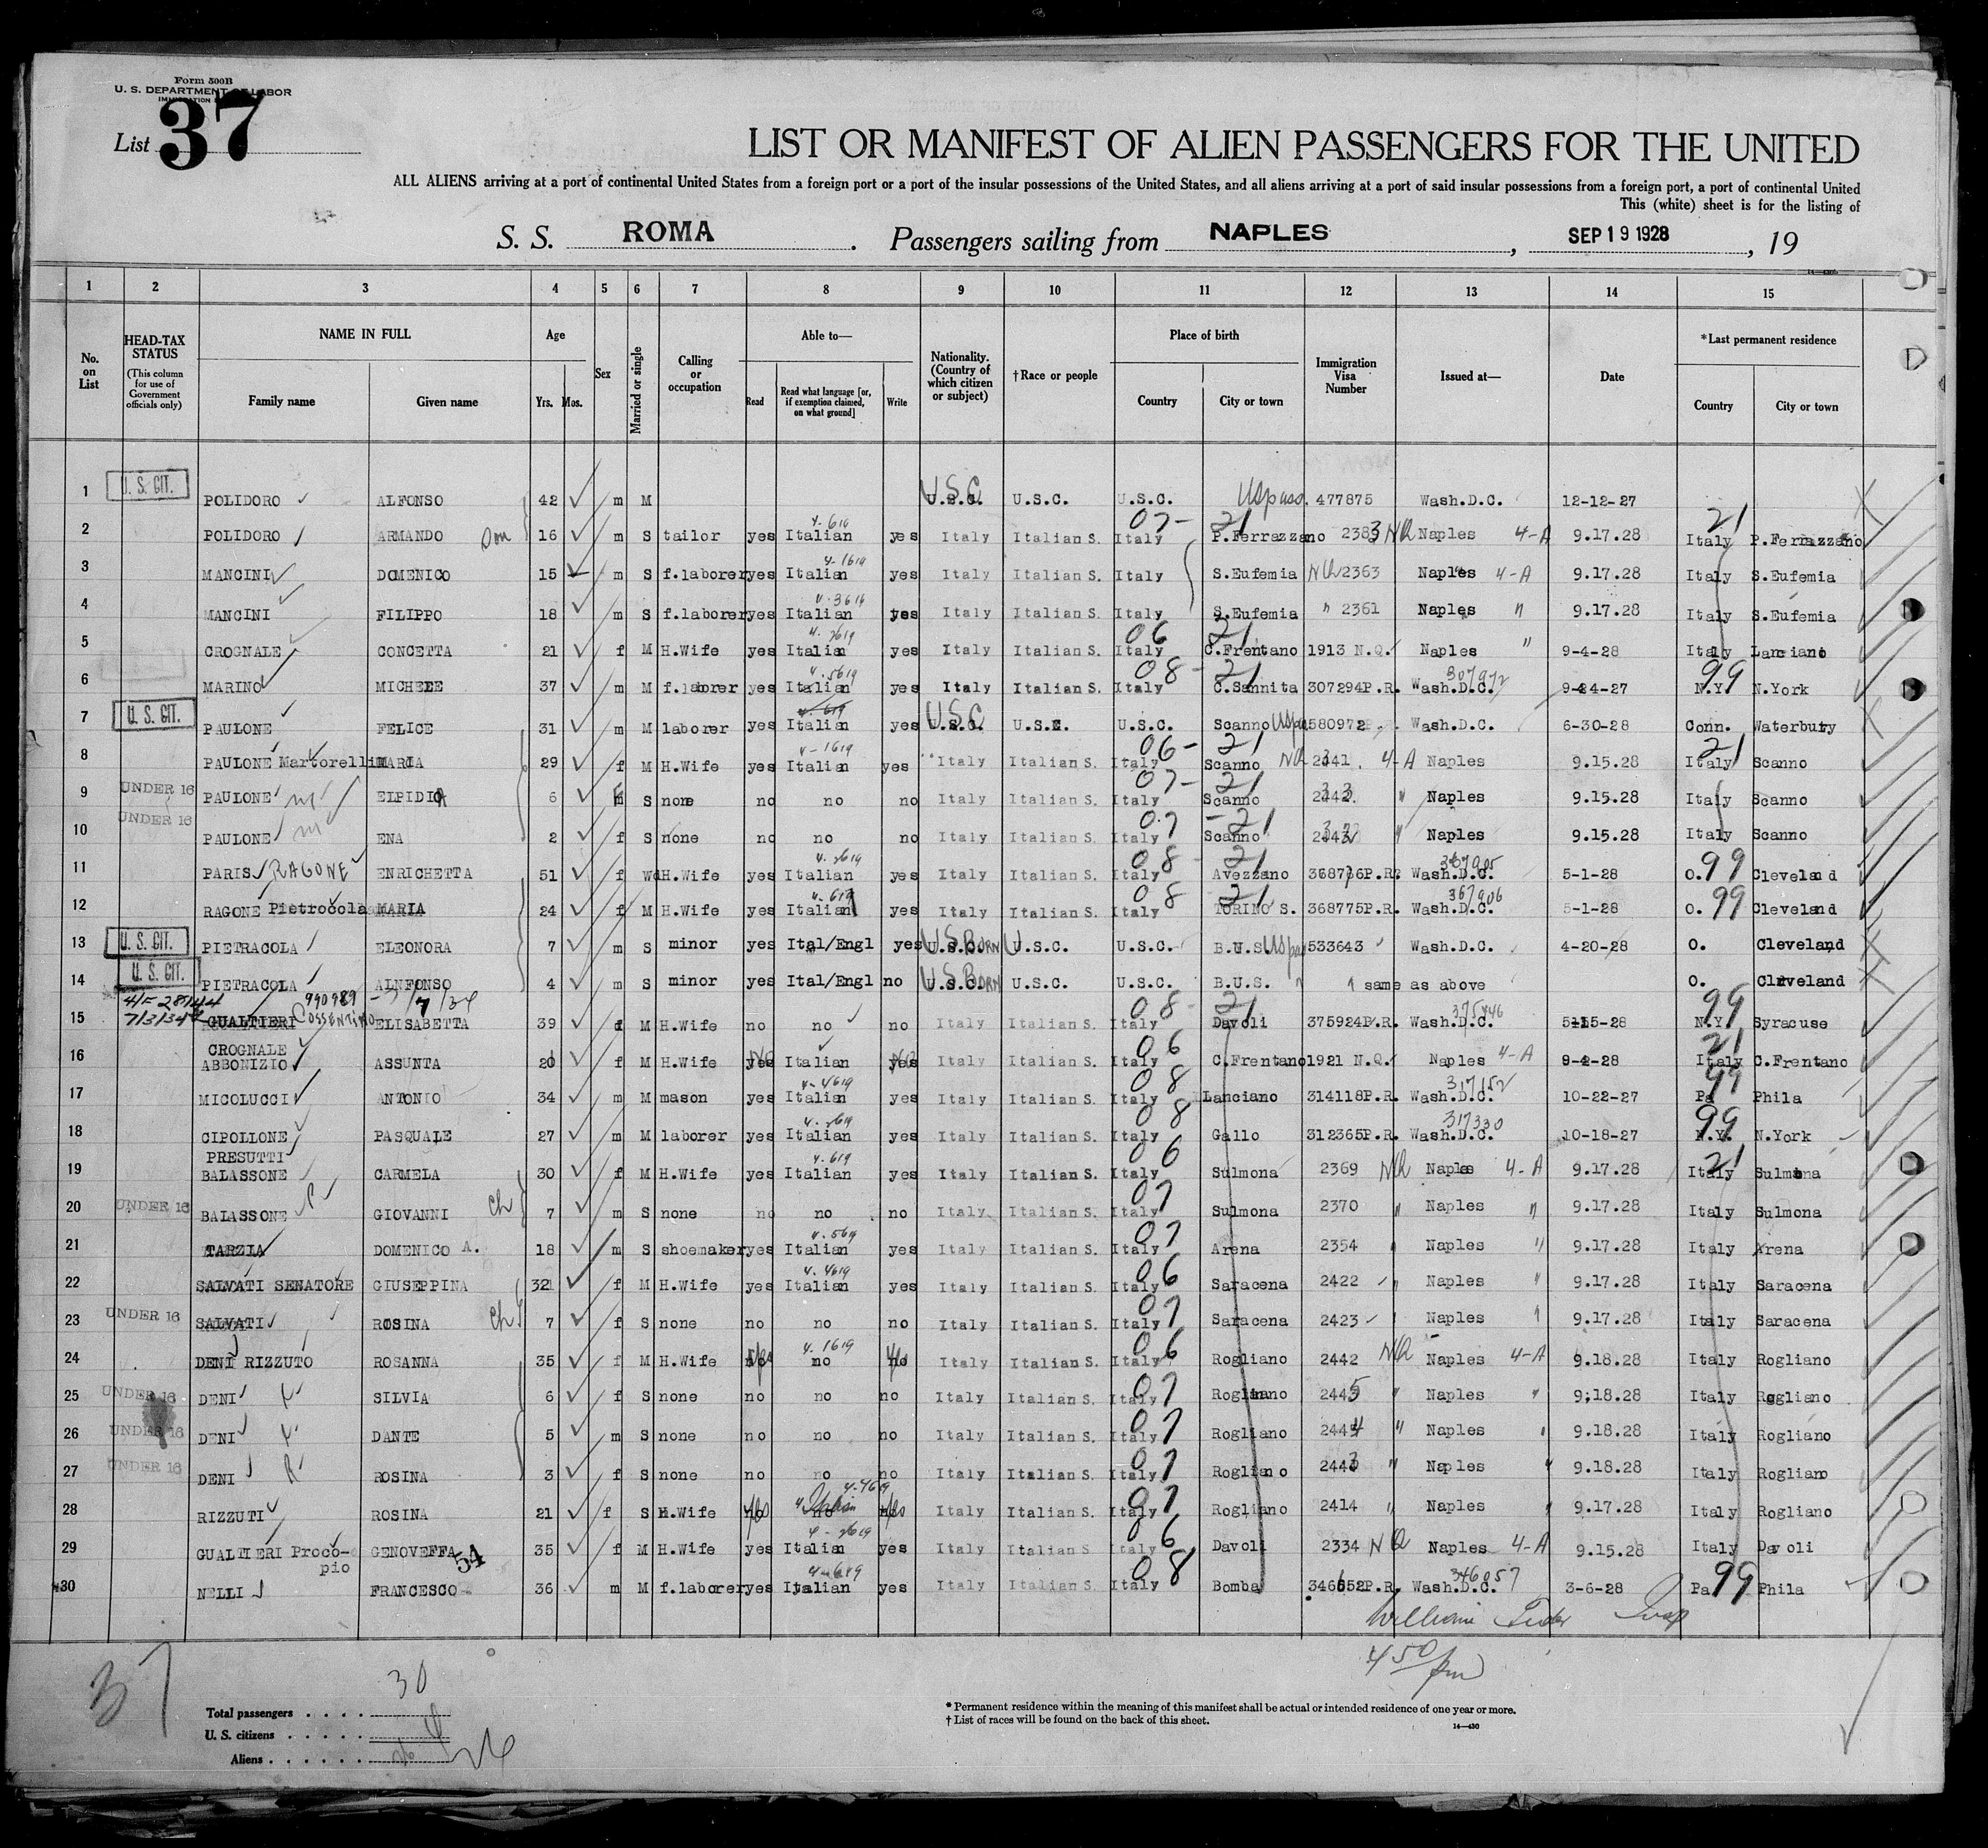 Form 500B
U. S. DEPARTMENT OF LABOR
List 37
LIST OR MANIFEST OF ALIEN PASSENGERS FOR THE UNITED
ALL ALIENS arriving at a port of continental United States from a foreign port or a port of the insular possessions of the United States, and all aliens arriving at a port of said insular possessions from a foreign port, a port of continental United
This (white) sheet is for the listing of
S. S. ROMA . Passengers sailing from NAPLES , SEP 19 1928 , 19
1 2 3 4 5 6 7 8 9 10 11 12 13 14 15
No. on List
HEAD-TAX STATUS (This column for use of Government officials only)
NAME IN FULL
Family name Given name
Age Yrs. Mos.
Sex
Married or single
Calling or occupation
Able to—
Read Read what language [or, if exemption claimed, on what ground] Write
Nationality. (Country of which citizen or subject)
†Race or people
Place of birth
Country City or town
Immigration Visa Number
Issued at—
Date
*Last permanent residence
Country City or town
1 U. S. CIT. POLIDORO ALFONSO 42 m M U.S.C. U.S.C. U.S.C. US pass. 477875 Wash.D.C. 12-12-27
2 POLIDORO ARMANDO Son 16 m S tailor yes Italian yes Italy Italian S. Italy 07- 21 P.Ferrazzano 2383 NQ Naples 4-A 9.17.28 Italy 21 P.Ferrazzano
3 MANCINI DOMENICO 15 m S f.laborer yes Italian yes Italy Italian S. Italy S.Eufemia NQ 2363 Naples 4-A 9.17.28 Italy S.Eufemia
4 MANCINI FILIPPO 18 m S f.laborer yes Italian yes Italy Italian S. Italy S.Eufemia " 2361 Naples " 9.17.28 Italy S.Eufemia
5 CROGNALE CONCETTA 21 f M H.Wife yes Italian yes Italy Italian S. Italy 06 21 C.Frentano 1913 N.Q. Naples " 9-4-28 Italy Lanciano
6 MARINO MICHELE 37 m M f.laborer yes Italian yes Italy Italian S. Italy 08- 21 C.Sannita 307294P.R. Wash.D.C. 307972 9-24-27 N.Y. 99 N.York
7 U. S. CIT. PAULONE FELICE 31 m M laborer yes Italian yes U.S.C. U.S.C. U.S.C. Scanno US pass 580972 Wash.D.C. 6-30-28 Conn. Waterbury
8 PAULONE Martorelli MARIA 29 f M H.Wife yes Italian yes Italy Italian S. Italy 06- 21 Scanno NQ 2341 4-A Naples 9.15.28 Italy 21 Scanno
9 UNDER 16 PAULONE ELPIDIA 6 f S none no no no Italy Italian S. Italy 07- 21 Scanno " Naples 9.15.28 Italy Scanno
10 UNDER 16 PAULONE ENA 2 f S none no no no Italy Italian S. Italy 07 -21 Scanno " Naples 9.15.28 Italy Scanno
11 PARIS RAGONE ENRICHETTA 51 f Wd H.Wife yes Italian yes Italy Italian S. Italy 08- 21 Avezzano 368776P.R. Wash.D.C. 367905 5-1-28 O. 99 Cleveland
12 RAGONE Pietrocola MARIA 24 f M H.Wife yes Italian yes Italy Italian S. Italy 08 21 TORINO S. 368775P.R. Wash.D.C. 367906 5-1-28 O. 99 Cleveland
13 U. S. CIT. PIETRACOLA ELEONORA 7 m S minor yes Ital/Engl yes U.S.BORN U.S.C. U.S.C. B.U.S. US pass 533643 Wash.D.C. 4-20-28 O. Cleveland
14 U. S. CIT. PIETRACOLA ALNFONSO 4 m S minor yes Ital/Engl no U.S.BORN U.S.C. U.S.C. B.U.S. " same as above O. Cleveland
990989
7/3/34
15 GUALTIERI COSSENTINO ELISABETTA 39 f M H.Wife no no no Italy Italian S. Italy 08- 21 Davoli 375924P.R. Wash.D.C. 375446 5-15-28 N.Y. 99 Syracuse
16 CROGNALE ABBONIZIO ASSUNTA 20 f M H.Wife No Italian No Italy Italian S. Italy 06 C.Frentano 1921 N.Q. Naples 4-A 9-4-28 Italy 21 C.Frentano
17 MICOLUCCI ANTONIO 34 m M mason yes Italian yes Italy Italian S. Italy 08 Lanciano 314118P.R. Wash.D.C. 317152 10-22-27 Pa 99 Phila
18 CIPOLLONE PASQUALE 27 m M laborer yes Italian yes Italy Italian S. Italy 08 Gallo 312365P.R. Wash.D.C. 317330 10-18-27 N.Y. 99 N.York
19 PRESUTTI BALASSONE CARMELA 30 f M H.Wife yes Italian yes Italy Italian S. Italy 06 Sulmona 2369 NQ Naples 4-A 9.17.28 Italy 21 Sulmona
20 UNDER 16 BALASSONE GIOVANNI Ch 7 m S none no no no Italy Italian S. Italy 07 Sulmona 2370 " Naples " 9.17.28 Italy Sulmona
21 TARZIA DOMENICO A. 18 m S shoemaker yes Italian yes Italy Italian S. Italy 07 Arena 2354 " Naples " 9.17.28 Italy Arena
22 SALVATI SENATORE GIUSEPPINA 32 f M H.Wife yes Italian yes Italy Italian S. Italy 06 Saracena 2422 " Naples " 9.17.28 Italy Saracena
23 UNDER 16 SALVATI ROSINA Ch 7 f S none no no no Italy Italian S. Italy 07 Saracena 2423 Naples " 9.17.28 Italy Saracena
24 DENI RIZZUTO ROSANNA 35 f M H.Wife yes no yes Italy Italian S. Italy 06 Rogliano 2442 NQ Naples 4-A 9.18.28 Italy Rogliano
25 UNDER 16 DENI SILVIA 6 f S none no no no Italy Italian S. Italy 07 Rogliano 2445 " Naples " 9.18.28 Italy Rogliano
26 UNDER 16 DENI DANTE 5 m S none no no no Italy Italian S. Italy 07 Rogliano 2444 " Naples " 9.18.28 Italy Rogliano
27 UNDER 16 DENI ROSINA 3 f S none no no no Italy Italian S. Italy 07 Rogliano 2443 " Naples " 9.18.28 Italy Rogliano
28 RIZZUTI ROSINA 21 f S H.Wife yes Italian yes Italy Italian S. Italy 07 Rogliano 2414 " Naples " 9.17.28 Italy Rogliano
29 GUALTIERI Proco-pio GENOVEFFA 54 35 f M H.Wife yes Italian yes Italy Italian S. Italy 06 Davoli 2334 NQ Naples 4-A 9.15.28 Italy Davoli
30 NELLI FRANCESCO 36 m M f.laborer yes Italian yes Italy Italian S. Italy 08 Bomba P.R. Wash.D.C. 346057 3-6-28 Pa 99 Phila
William Insp
4 50 pm
37
Total passengers . . . . 30
U. S. citizens . . . . . 4
Aliens . . . . . . 26 26
* Permanent residence within the meaning of this manifest shall be actual or intended residence of one year or more.
† List of races will be found on the back of this sheet.
14—430